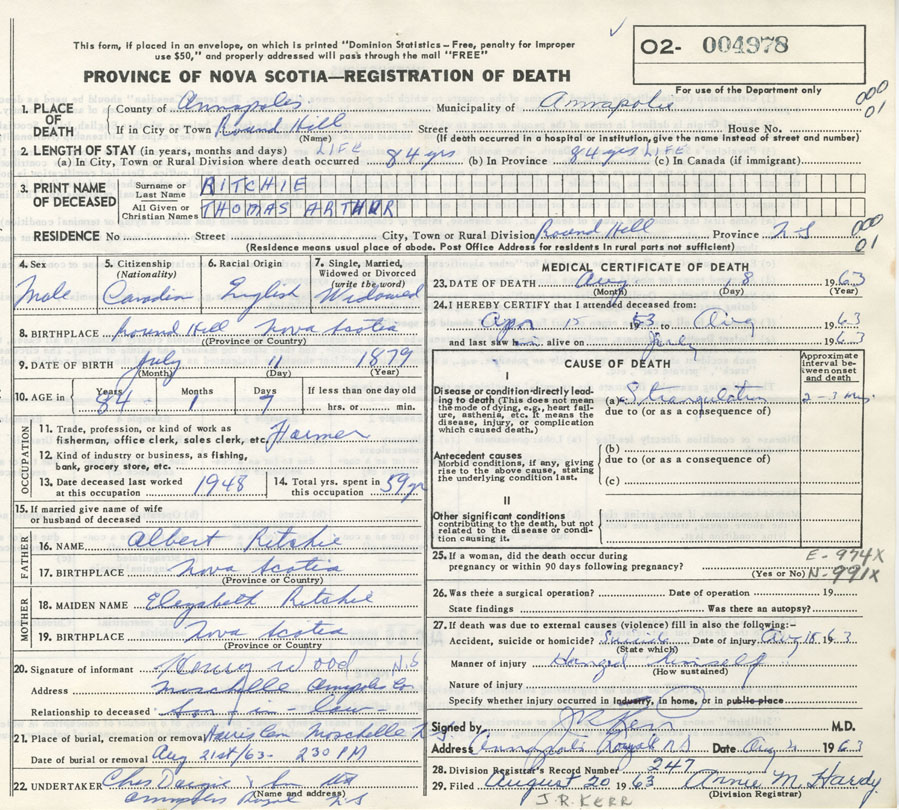 This form, if placed in an envelope, on which is printed "Dominion Statistics – Free, penalty for improper
use $50," and properly addressed will pass through the mail "FREE"
O2- 004978
PROVINCE OF NOVA SCOTIA—REGISTRATION OF DEATH
For use of the Department only
1. PLACE OF DEATH
County of Annapolis Municipality of Annapolis
000
01
If in City or Town Round Hill Street House No.
(Name) (If death occurred in a hospital or institution, give the name instead of street and number)
2. LENGTH OF STAY (in years, months and days) LIFE
(a) In City, Town or Rural Division where death occurred 84 yrs (b) In Province 84 yrs LIFE (c) In Canada (if immigrant)
3. PRINT NAME OF DECEASED
Surname or Last Name RITCHIE
All Given or Christian Names THOMAS ARTHUR
RESIDENCE No. Street City, Town or Rural Division Round Hill Province N S
000
01
(Residence means usual place of abode. Post Office Address for residents in rural parts not sufficient)
4. Sex
Male
5. Citizenship
(Nationality)
Canadian
6. Racial Origin
English
7. Single, Married,
Widowed or Divorced
(write the word)
Widowed
8. BIRTHPLACE Round Hill Nova Scotia
(Province or Country)
9. DATE OF BIRTH July 11 1879
(Month) (Day) (Year)
10. AGE in Years 84 Months 1 Days 7 If less than one day old
hrs. or min.
OCCUPATION
11. Trade, profession, or kind of work as
fisherman, office clerk, sales clerk, etc. Farmer
12. Kind of industry or business, as fishing,
bank, grocery store, etc.
13. Date deceased last worked
at this occupation 1948
14. Total yrs. spent in
this occupation 59 yr
15. If married give name of wife
or husband of deceased
FATHER
16. NAME Albert Ritchie
17. BIRTHPLACE Nova Scotia
(Province or Country)
MOTHER
18. MAIDEN NAME Elizabeth Ritchie
19. BIRTHPLACE Nova Scotia
(Province or Country)
20. Signature of informant Henry Wood N.S
Address Moschelle Annapolis Co
Relationship to deceased Son - in - law
21. Place of burial, cremation or removal Moschelle N.S.
Date of burial or removal Aug 21st/63 - 230 PM
22. UNDERTAKER Chas & Son
(Name and address)
Annapolis Royal N S
MEDICAL CERTIFICATE OF DEATH
23. DATE OF DEATH Aug. 18 1963
(Month) (Day) (Year)
24. I HEREBY CERTIFY that I attended deceased from:
Apr 15 1953 to Aug 1963
and last saw him alive on July 1963
CAUSE OF DEATH
Approximate interval between onset and death
I
Disease or condition directly leading to death (This does not mean the mode of dying, e.g., heart failure, asthenia, etc. It means the disease, injury, or complication which caused death.)
(a) Strangulation 2-3 hrs.
due to (or as a consequence of)
Antecedent causes
Morbid conditions, if any, giving rise to the above cause, stating the underlying condition last.
(b)
due to (or as a consequence of)
(c)
II
Other significant conditions
contributing to the death, but not related to the disease or condition causing it.
25. If a woman, did the death occur during
pregnancy or within 90 days following pregnancy?
(Yes or No)
E-974X
N-991X
26. Was there a surgical operation? Date of operation 19
State findings Was there an autopsy?
27. If death was due to external causes (violence) fill in also the following:–
Accident, suicide or homicide? Suicide Date of injury Aug 18 1963
(State which)
Manner of injury Hanged himself
(How sustained)
Nature of injury
Specify whether injury occurred in Industry, in home, or in public place
Signed by J R Kerr M.D.
Address Annapolis Royal NS Date Aug 1963
28. Division Registrar's Record Number 247
29. Filed August 20 1963 Annie M. Hardy
(Division Registrar)
J.R. KERR